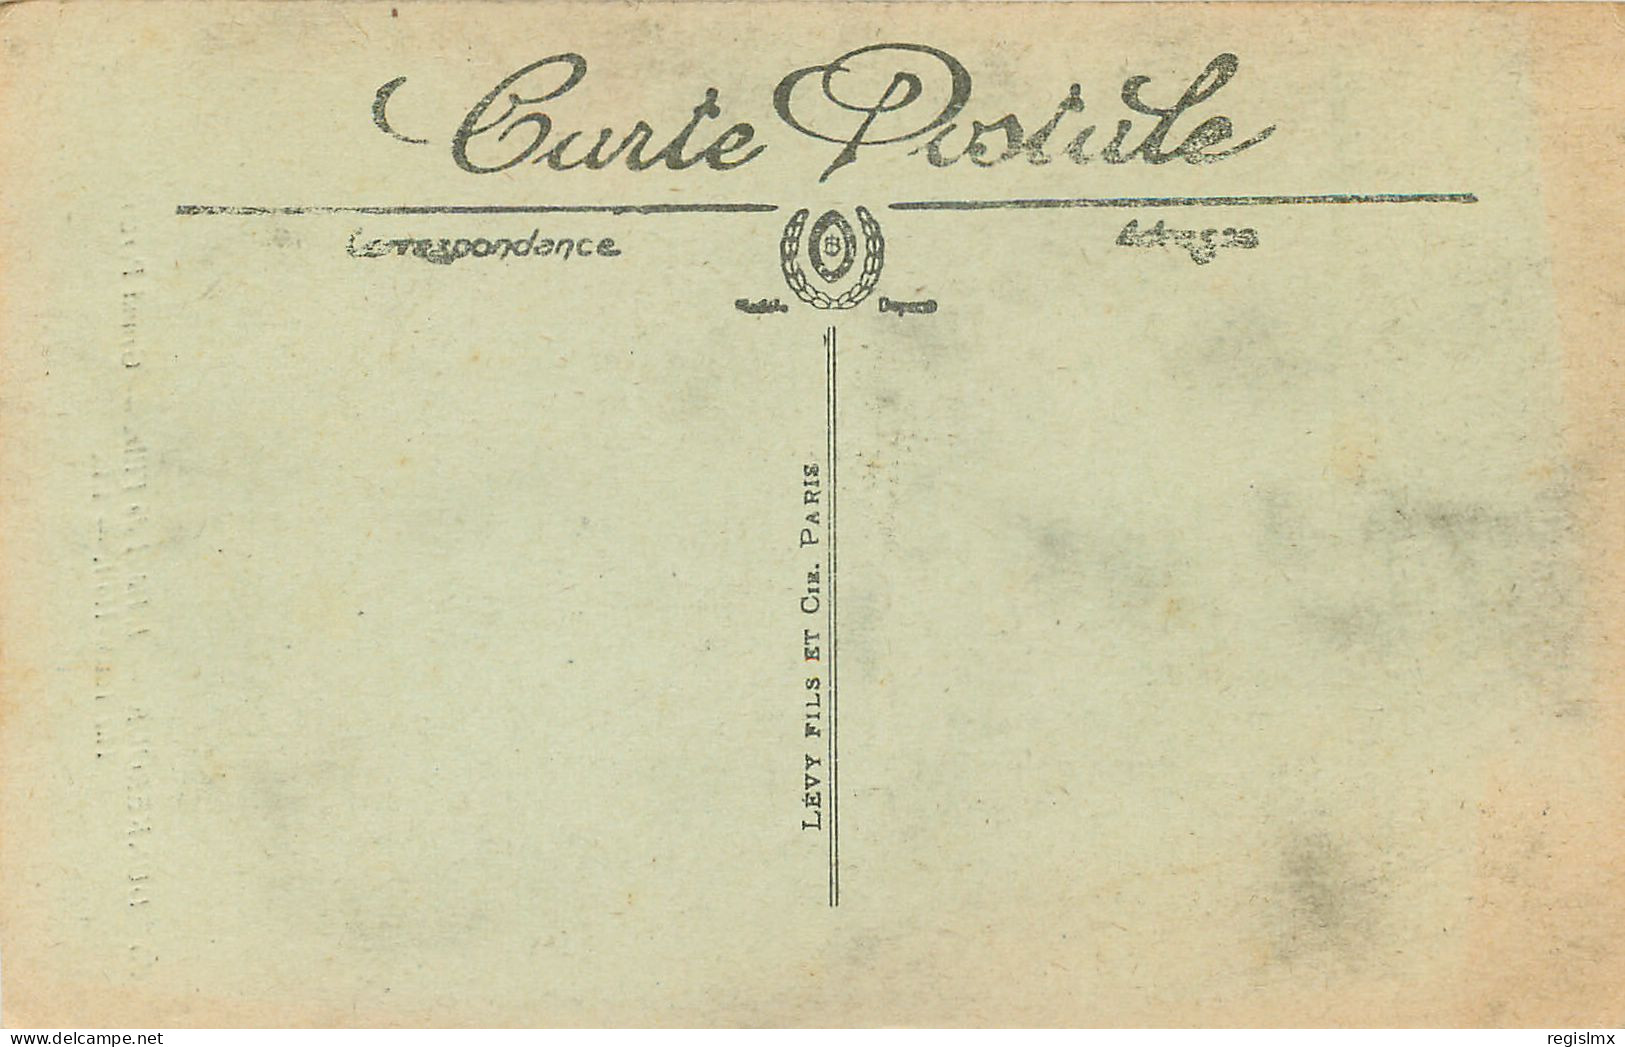 Carte Postale
Correspondance
Adresse
LÉVY FILS ET CIE. PARIS
delcampe.net
regislmx